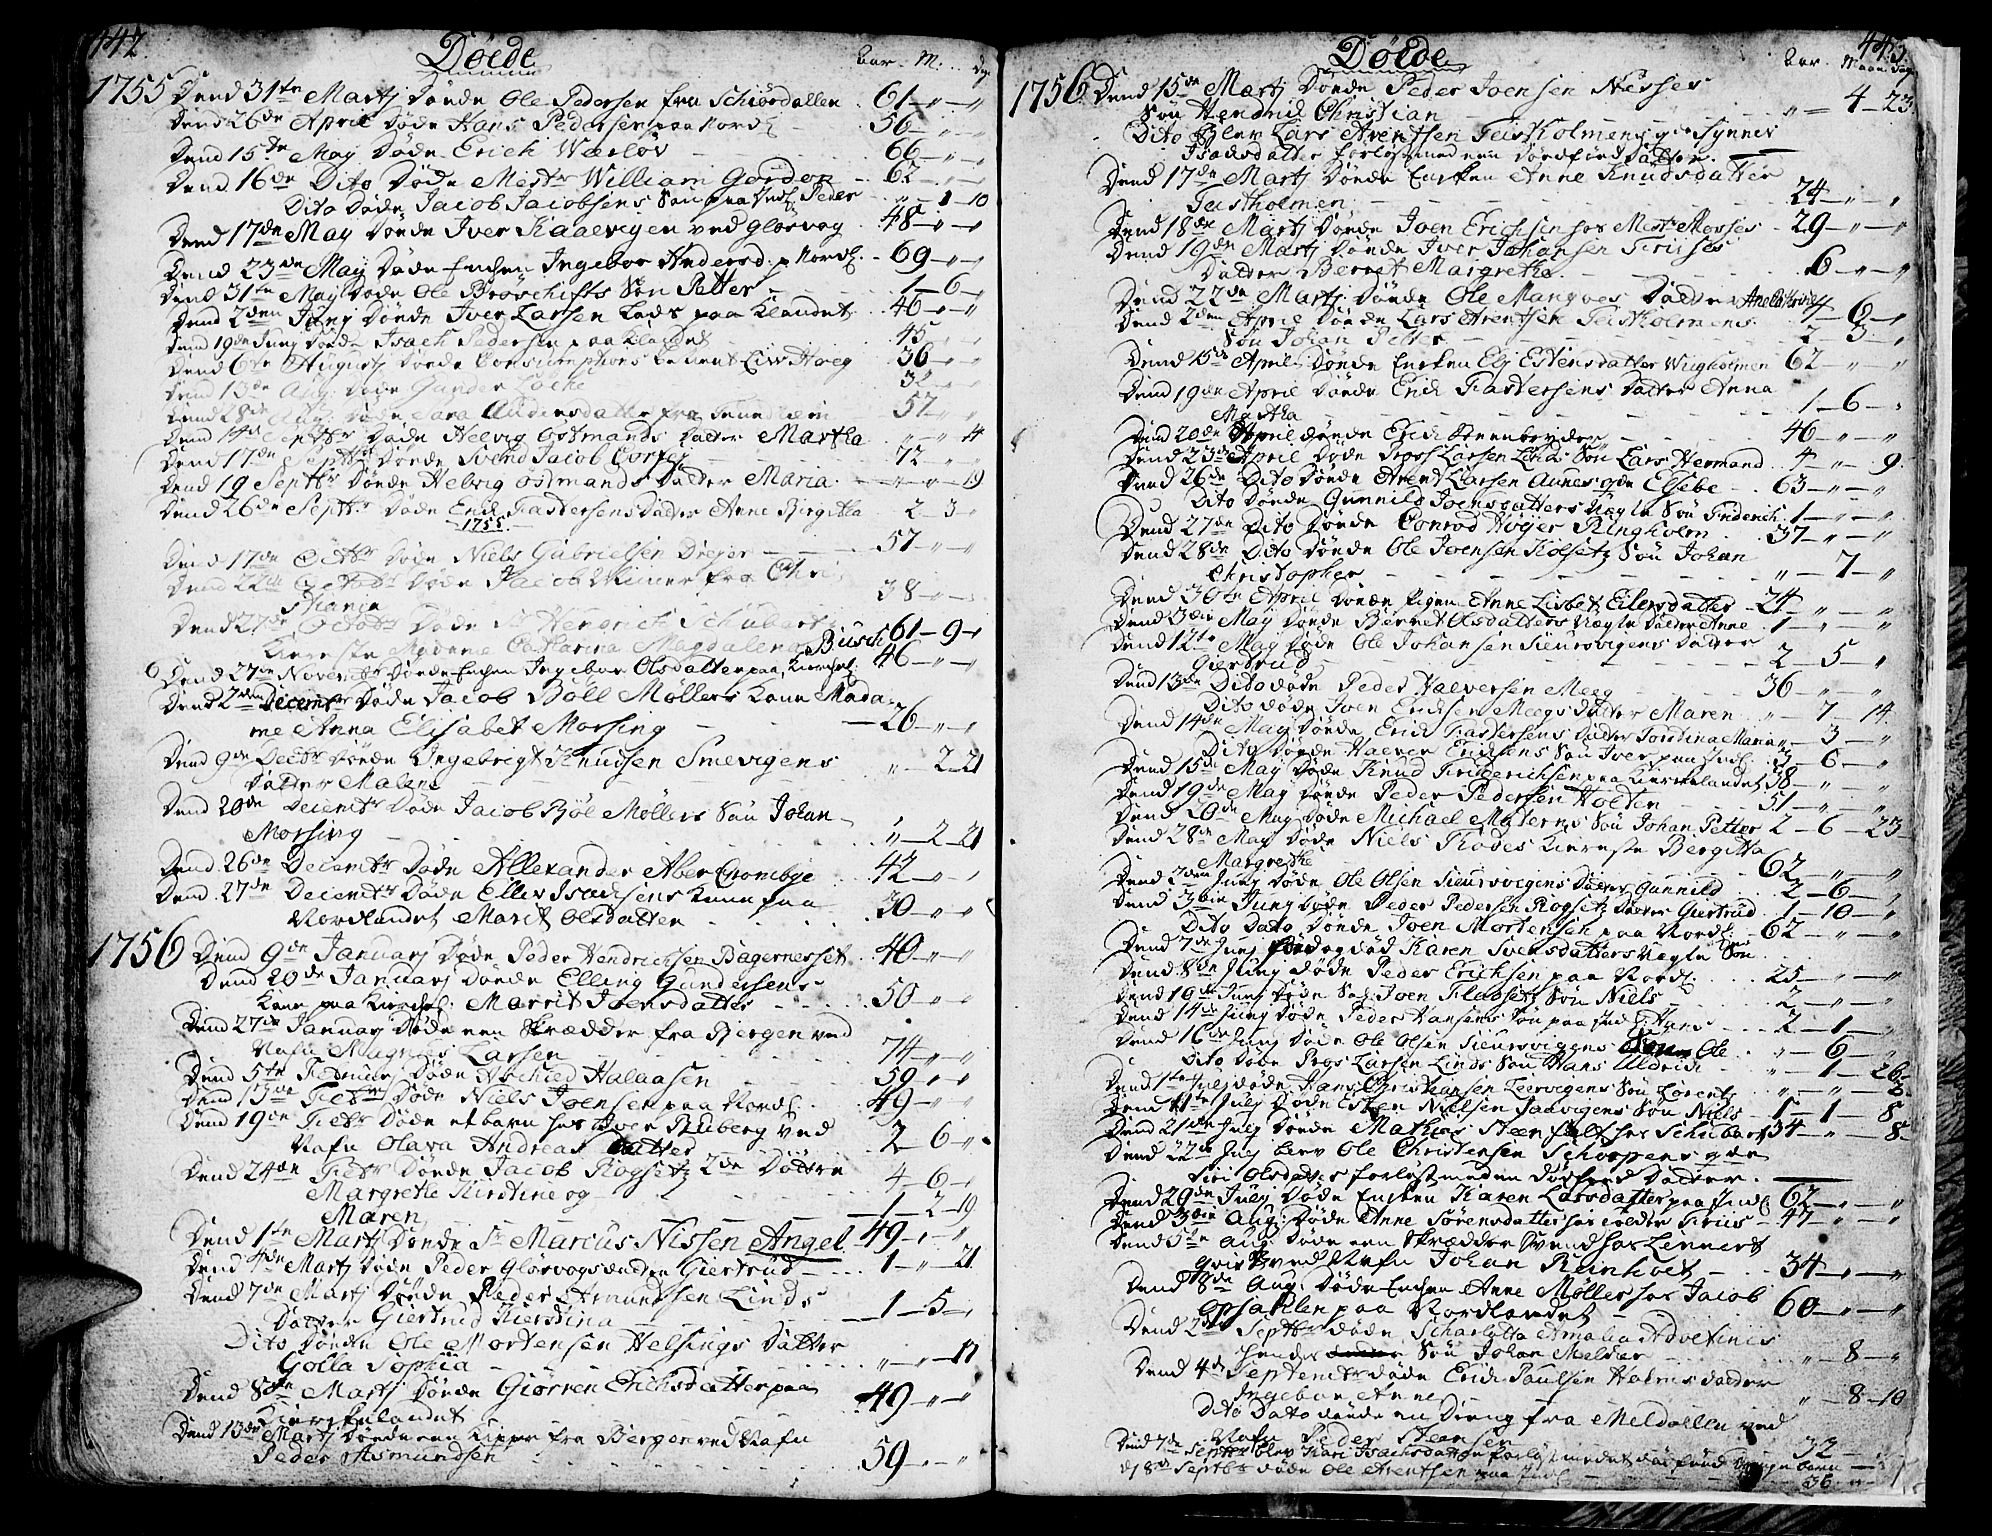 442.
Döede
Aar. M. Dg.
1755 Dend 31te Martj döede Ole Pedersen fra Schiördallen 61 — " — "
Dend 26de April Döde Hans Pedersen paa Nordl. 56 — " — "
Dend 15de May Döde Erich Wærløv 66 — " — "
Dend 16de Dito Döde Mestr William Gordon 62 — " — "
Dito Döde Jacob Jacobsens Søn paa Indl. Peder " — 1 — 10
Dend 17de May döede Iver Kaaevigen ved Glosvog 48 — " — "
Dend 23de May döde Enchen Ingebor Andersd. p Nordl. 69 — " — "
Dend 31te May döde Ole Bröschifts Søn Petter 1 — 6 — "
Dend 2den Junj döede Iver Larsen Lads paa Elandet 46 — " — "
Dend 19de Junj döede Isach Pedersen paa Elandet 45 — " — "
Dend 6te Augusti döede Consumptions betient Eivr Hoeg 36 — " — "
Dend 13de Aug: döde Gunder Löche
Dend 28de Aug: döde Sara Andersdatter fra 57 — " — "
Dend 14de Septbr döde Helvig Ostmands datter Martha " — " — 4
Dend 17de Septbr döede Svend Jacob 72 — " — "
Dend 19 Septbr döede Helvig Ostmands Datter Maria " — " — 19
Dend 26de Septbr döde Erich Fastersens Datter Anne Birgitha 2 — 3 — "
1755.
Dend 17de Octbr döde Niels Gabrielsen Drejer 57 — " — "
Dend 22de Octobr döde Jacob fra Chri
stiania 38 — " — "
Dend 27de Octobr döde Sr Hendrich Schubarts
Kiereste Madame Catharina Magdalena Busch 61 — 9 — "
Dend 27de Novembr döede Enchen Ingebor Olsdatter paa Kirchel. 46 — " — "
Dend 2den Decembr döde Jacob Böll Möllers Kone Mada=
me Anna Elisabet Morsing 26 — " — "
Dend 9de Decbr döede Ingebrigt Knudsen Smevigens
Datter Malene " — 2 — 21
Dend 20de Decembr döde Jacob Böl Möllers Søn Johan
Morsing " — 2 — 21
Dend 26de Decembr Döde Allexander Aber Crombye 42 — " — "
Dend 27de Decembr döde Eller Isachsens Kone paa
Nordlandet Marit Olsdatter 30 — " — "
1756 Dend 9de Januarj döde Peder Hendrichsen Bagernesset 40 — " — "
Dend 20de Januarj döede Elling Gundersens
Kone paa Kirchel. Marrit Joensdatter 50 — " — "
Dend 27de Januarj döde een Skrædder fra Bergen ved
Nafn Magnus Larsen 74 — " — "
Dend 5te Februarj döde Halaasen 50 — " — "
Dend 15de Febr döde Niels Joensen paa Nordl. 49 — " — "
Dend 19de Febr döde et barn hos Iver Ruberg ved
Nafn Olava Andreas datter 2 — 6 — "
Dend 24de Febr döede Jacob Rogsetz 2de Döttre
Margrethe Kirstine og 4 — 6 — "
Maren 1 — 2 — 19
Dend 1te Martj döede Sr Marcus Nissen Angel 49 — " — "
Dend 4de Martj döde Peder Glosvogs datter Giertrud 1 — " — 21
Dend 7de Martj döede Peder Amundsen Linds
Datter Giertrud Kierstina 1 — 5 — "
Dito döede Ole Mortensen Helsings datter
Golla Sophia " — " — 17
Dend 8de Martj döede Giörren Erichsdatter paa
Kierchelandet 49 — " — "
Dend 13de Martj döede een Kipper fra Bergen ved Nafn
Peder Asmundsen 59 — " — "
443.
Döede
Aar. Maan. Dag
1756. Dend 15de Martj Döede Peder Joensen Nesses
Søn Hendrich Christian " — 4 — 23
Dito Blev Lars Arentsen Feistholmens qde Synnev
Isachsdatter forløst med een dödföed datter.
Dend 17de Martj döede Encken Anne Knudsdatter
Feistholmen 24 — " — "
Dend 18de Martj döede Joen Erichsen hos Mestr Mosses 29 — " — "
Dend 19de Martj döede Iver Johansen Friises
Datter Berret Margretha 6 — "
Dend 22de Martj döede Ole Mangves Datter 6 — "
Dend 2den April döede Lars Arentsen Feistholmens
Søn Johan Petter 2 — 3 — "
Dend 15de April döede Encken Elj Estensdatter Wugholmen 62 — " — "
Dend 19de April döede Erich Fastersens Datter Anna
Martha 1 — 6 — "
Dend 20de April döede Erich Steenbryder 46 — " — "
Dend 23de April döde Larsen Linds Søn Lars Hermand 4 — " — 9
Dend 26de Dito döede Arent Larsen Aunes qde Elsebe 63 — " — "
Dito döede Gunnild Joensdatters Uægte Søn Friderich 1 — " — "
Dend 27de Dito döede Conrod Höyer Ringholm 37 — " — "
Dend 28de Dito döede Ole Joensen Kolsetz Søn Johan
Christopher " — 7 — "
Dend 30te April döede Pigen Anne Lisbet Eilersdatter 24 — " — "
Dend 3die May döde Berret Olsdatters Uægte Datter Anne 1 — " — "
Dend 12te May döde Ole Johansen Sieursvigens Datter
Giertrud 2 — 5 — "
Dend 13de Dito döde Peder Halversen Meeg 36 — " — "
Dito döde Joen Erichsen Meegs datter Maren " — 7 — 14
Dend 14de May döede Erich Fastersens datter Torstina Maria " — 3 — "
Dito döede Halver Erichsens Søn Iver paa Indl. 3 — 6 — "
Dend 15de May döde Knud Friderichsen paa Kirchelandet 38 — " — "
Dend 19de May döede Peder Pedersen Holten 51 — " — "
Dend 20de May döde Michael Materns Søn Johan Petter 2 — 6 — 23
Dend 28de May döde Niels Todes Kiereste Bergitta
Margrethe 62 — " — "
Dend 2den Junj döde Ole Olsen Sieursvigens datter Gunnild 2 — 6 — "
Dend 3die Junj döde Peder Pedersen Rogsetz datter Giertrud 1 — 10 — "
Dito Dato döede Joen Mortensen paa Nordl. 62 — " — "
Dend 7de Junj Karen Svensdatters Uægte Søn
Dend 8de Junj döde Peder Erichsen paa Nordl. 25 — " — "
Dend 10de Junj döde Sal. Joen Fladsetz Søn Niels 2 — " — "
Dend 14de Junj döde Peder Hansens Søn paa Indl. Hans 2 — 1 — "
Dend 16de Junj döde Ole Olsen Sieursvigens Søn Ole " — 6 — "
Dito döde Larsen Linds Søn Hans Uldrich " — 1 — 26
Dend 1te Julj döde Hans Christiansen Leervigens Søn Lorents " — " — 8
Dend 11te Julj döde Esten Nielsen Sadvigens Søn Niels 5 — 1 — 8
Dend 21de Julj döede Mathias Steen hos Schubart 34 — " — 8
Dend 22de Julj blev Ole Christensen Schorpens qde
Siri Olsdatter forløst med en dödföed datter.
Dend 29de Julj döde Encken Karen Larsdatter paa Indl. 62 — " — "
Dend 3die Aug: döde Anne Sörensdatter hos Friis 47 — " — "
Dend 5te Aug: döde een Skrædder Svend hos Lennert
Qvist ved Nafn Johan Reinholt 34 — " — "
Dend 18de Aug. döde Enchen Anne Möller hos Jacob
Opsahlen paa Nordlandet 60 — " — "
Dend 2den Septbr döde Scharlotta Amalia
Hendes Søn Johan Melder " — 8 — "
Dend 4de Septembr döde Erich Paulsen Holms datter
Ingebor Anne " — 8 — 10
Dito Dato döede en Dreng fra Meldallen ved
Nafn Peder Steensen 32 — "
Dend 7de Septbr blev Kari Isachsdatter forløst med et dödföed Drenge barn
d 8de Septbr döde Ole Arentsen paa Indl. 36 — "